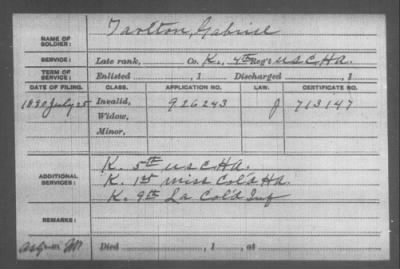 NAME OF SOLDIER: Tarlton, Gabriel
SERVICE: Late rank, Co. K., 4th Reg't U.S.C.H.A.
TERM OF SERVICE: Enlisted , 1 Discharged , 1
DATE OF FILING. CLASS. APPLICATION NO. LAW. CERTIFICATE NO.
1890 July 25 Invalid, 926243 J 713147
Widow,
Minor,
ADDITIONAL SERVICES: K. 5th U.S.C.H.A.
K. 1st Miss Col'd H.A.
K. 9th La Col'd Inf
REMARKS:
Died , 1 , at